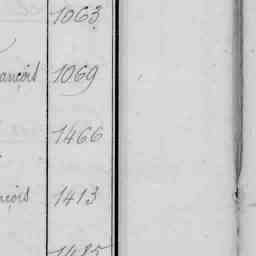 1063
ançois 1069
1466
nçois 1413
1485